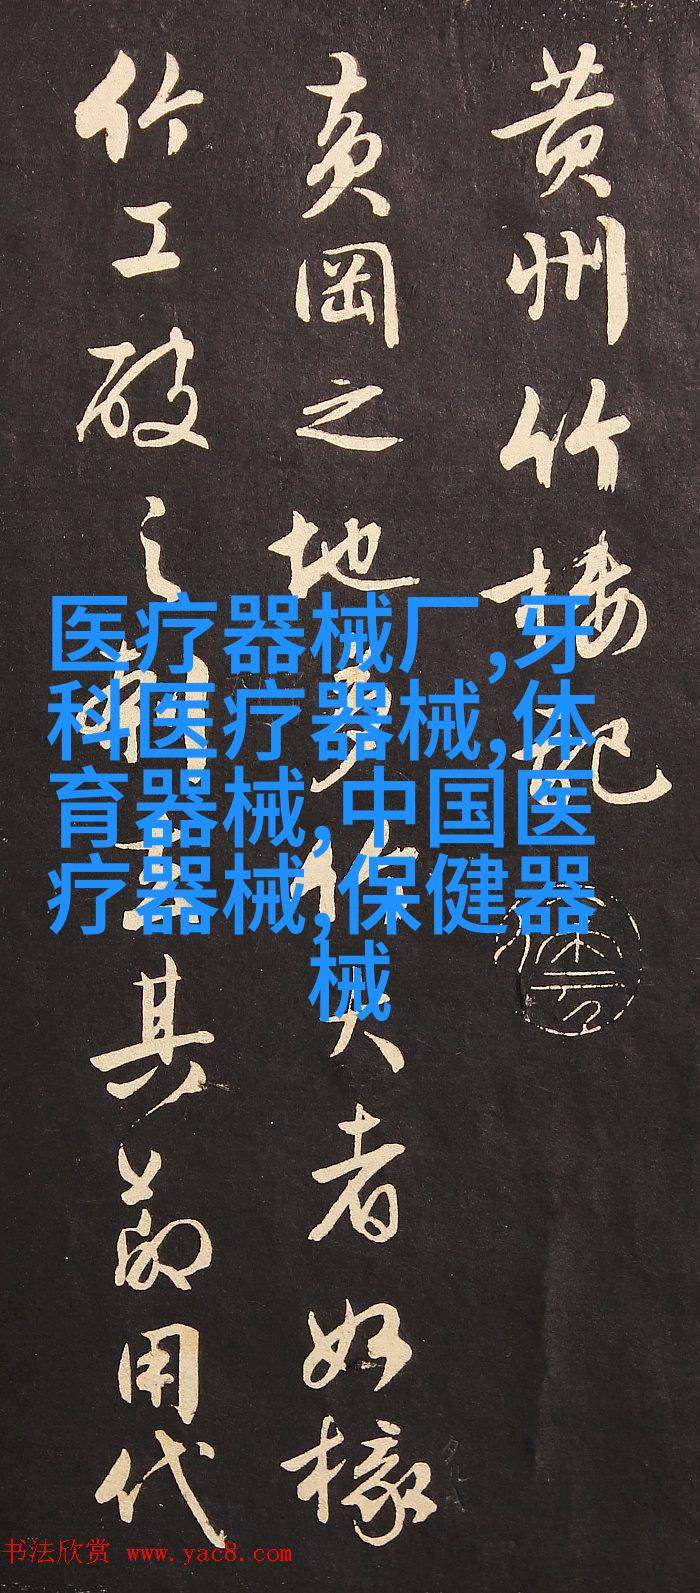 黄州竹楼记
黄冈之地多竹大者如椽
竹工破之刳去其节用代
医疗器械厂,牙
科医疗器械,体
育器械,中国医
疗器械,保健器
械
书法欣赏 www.yac8.com